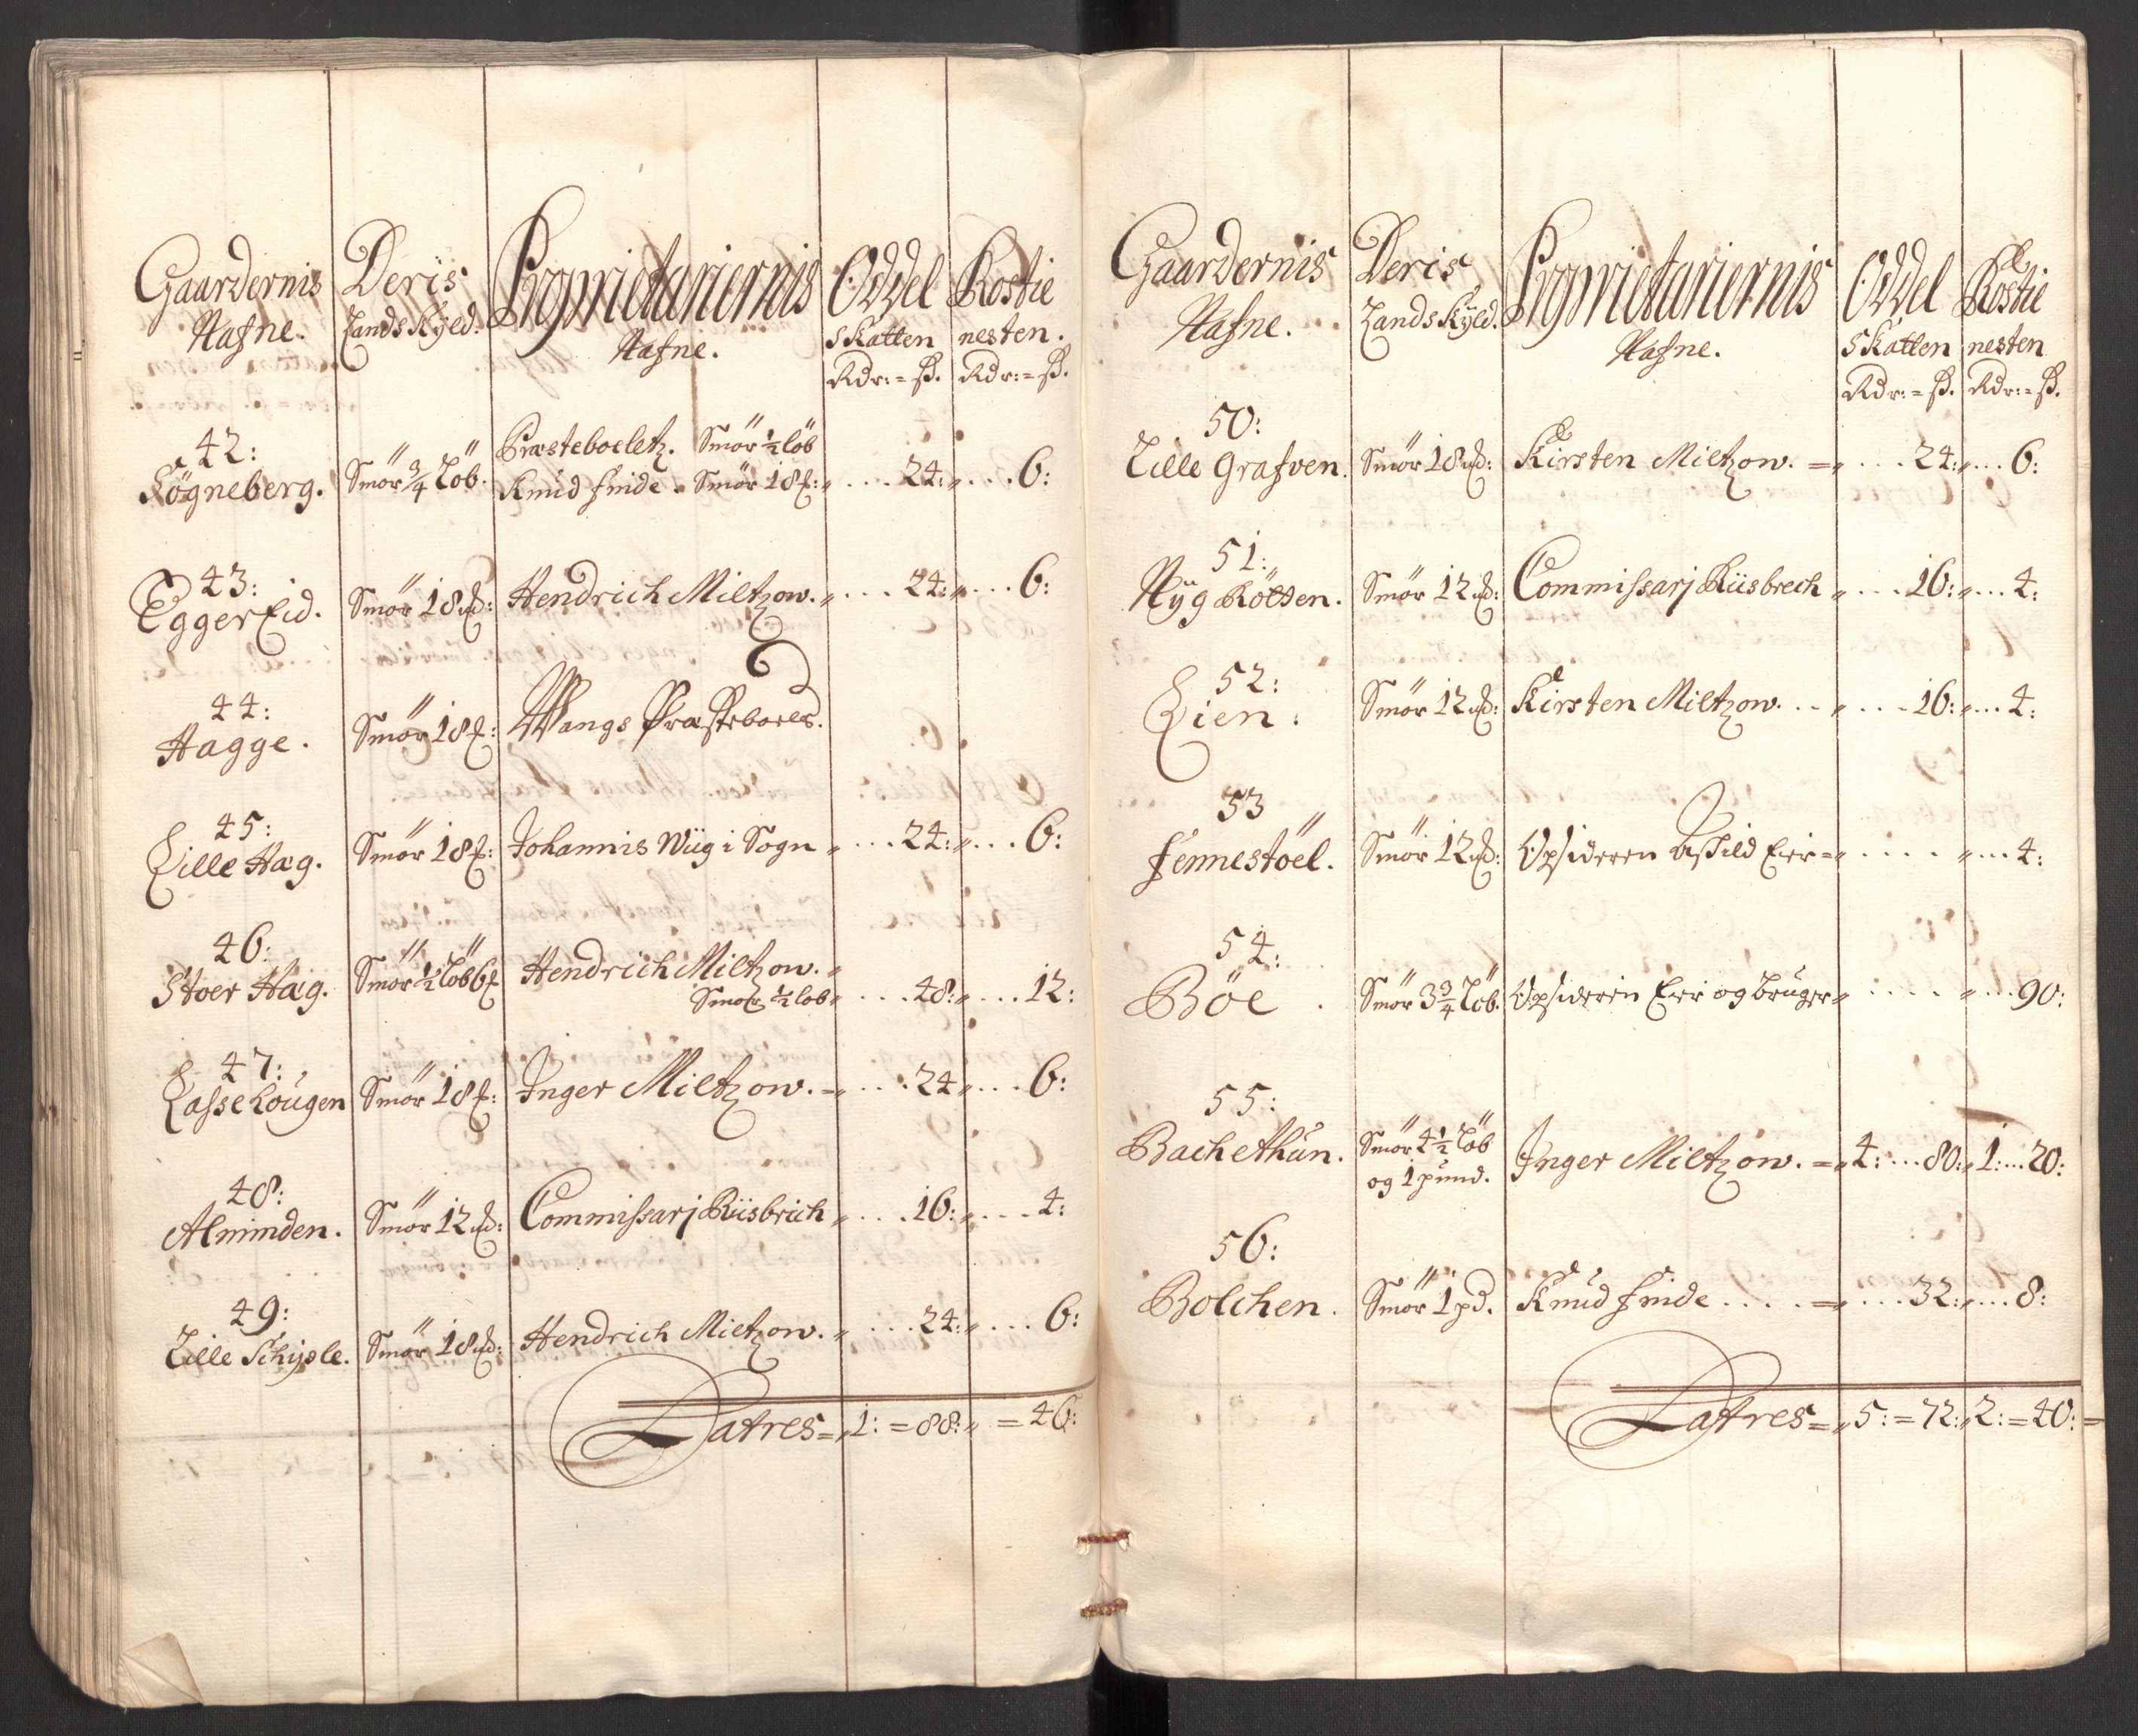 Gaardernis Nafne. | Deris Landskyld. | Proprietariernis Nafne. | Oddel Skatten Rdr: = ß. | Rostie nesten. Rdr: = ß.
42:
Præsteboeletz. Smör ½ löb
Sögneberg. | Smör ¾ Löb. | Knud finde. Smör 18 ℔: „ ... 24: „ ... 6:
43:
Egger Eid. | Smör 18 ℔: | Hendrich Miltzow. „ ... 24: „ ... 6:
44:
Hagge. | Smör 18 ℔: | Wangs Præsteboele.
45:
Lille Hag. | Smör 18 ℔: | Johannis Wiig i Sogn „ ... 24: „ ... 6:
46:
Stoer Hag. | Smör ½ Löb 6 ℔ | Hendrich Miltzow. „
Smör ½ lob „ ... 48: „ ... 12:
47:
Lasse Lougen | Smör 18 ℔: | Inger Miltzow. = „ ... 24 „ ... 6:
48:
Alminden. | Smör 12 ℔: | Commissarj Riisbrich „ ... 16: „ ... 4:
49:
Lille Schiple. | Smör 18 ℔: | Hendrich Miltzow. „ ... 24: „ ... 6:
Latres = „ 1: = 88: „ = 46:
Gaardernis Nafne. | Deris Landskyld. | Proprietariernis Nafne. | Oddel Skatten Rdr: = ß. | Rostie nesten Rdr: = ß.
50:
Lille Grafven. | Smör 18 ℔: | Kirsten Miltzow. = „ ... 24: „ ... 6:
51:
Nyg Röthen. | Smör 12 ℔: | Commissarj Riisbrech „ ... 16: „ ... 4:
52:
Lien. | Smör 12 ℔: | Kirsten Miltzow. .. „ ... 16: „ ... 4:
53
fennestöel. | Smör 12 ℔: | Opsideren Eier = „ .... „ ... 4:
54:
Böe. | Smör 3¾ Löb. | Opsideren Eier og bruger „ .... „ ... 90:
55:
Bachethun. | Smör 4½ Löb
og 1 pund. | Inger Miltzow. = „ 4: ... 80: „ 1: ... 20:
56:
Bolchen. | Smör 1 pd. | Knud finde .... = „ ... 32: „ ... 8:
Latres = „ 5: = 72: „ 2: = 40: =